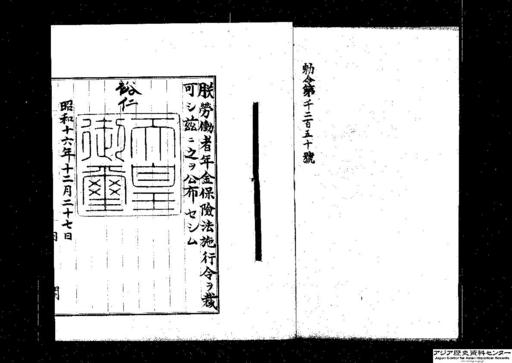 勅令第千二百五十號
朕勞働者年金保險法施行令ヲ裁
可シ茲ニ之ヲ公布セシム
裕仁
天皇
御璽
昭和十六年十二月二十七日
アジア歴史資料センター
Japan Center for Asian Historical Records